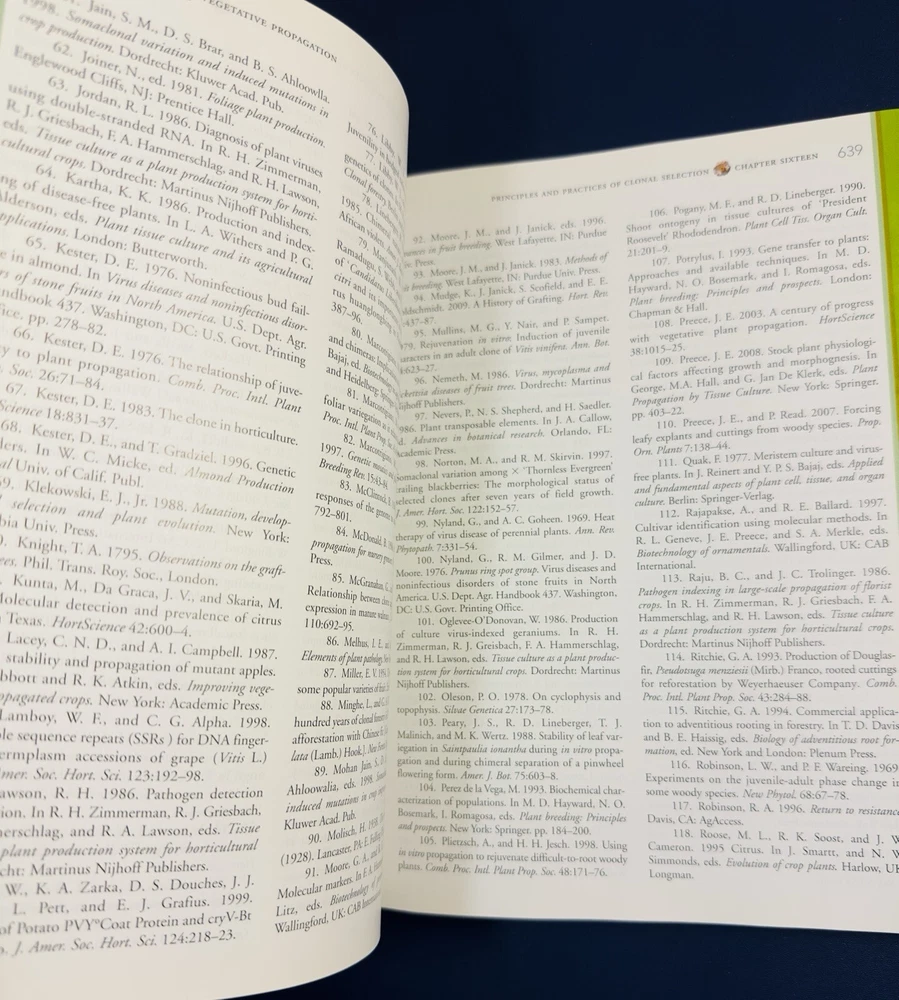 VEGETATIVE PROPAGATION
Jain, S. M., D. S. Brar, and B. S. Ahloowlla.
1998. Somaclonal variation and induced mutations in
crop production. Dordrecht: Kluwer Acad. Pub.
62. Joiner, N., ed. 1981. Foliage plant production.
Englewood Cliffs, NJ: Prentice Hall.
63. Jordan, R. L. 1986. Diagnosis of plant viruses
using double-stranded RNA. In R. H. Zimmerman,
R. J. Griesbach, F. A. Hammerschlag, and R. H. Lawson,
eds. Tissue culture as a plant production system for horti-
cultural crops. Dordrecht: Martinus Nijhoff Publishers.
64. Kartha, K. K. 1986. Production and index-
ng of disease-free plants. In L. A. Withers and P. G.
Alderson, eds. Plant tissue culture and its agricultural
pplications. London: Butterworth.
65. Kester, D. E. 1976. Noninfectious bud fail-
e in almond. In Virus diseases and noninfectious disor-
rs of stone fruits in North America. U.S. Dept. Agr.
ndbook 437. Washington, DC: U.S. Govt. Printing
fice, pp. 278–82.
66. Kester, D. E. 1976. The relationship of juve-
y to plant propagation. Comb. Proc. Intl. Plant
. Soc. 26:71–84.
67. Kester, D. E. 1983. The clone in horticulture.
Science 18:831–37.
68. Kester, D. E., and T. Gradziel. 1996. Genetic
lers. In W. C. Micke, ed. Almond Production
al Univ. of Calif. Publ.
69. Klekowski, E. J., Jr. 1988. Mutation, develop-
selection and plant evolution. New York:
bia Univ. Press.
Knight, T. A. 1795. Observations on the graft-
ees. Phil. Trans. Roy. Soc., London.
Kunta, M., Da Graca, J. V., and Skaria, M.
Molecular detection and prevalence of citrus
Texas. HortScience 42:600–4.
Lacey, C. N. D., and A. I. Campbell. 1987.
stability and propagation of mutant apples.
bbott and R. K. Atkin, eds. Improving vege-
opagated crops. New York: Academic Press.
Lamboy, W. F., and C. G. Alpha. 1998.
le sequence repeats (SSRs) for DNA finger-
ermplasm accessions of grape (Vitis L.)
mer. Soc. Hort. Sci. 123:192–98.
awson, R. H. 1986. Pathogen detection
ion. In R. H. Zimmerman, R. J. Griesbach,
nerschlag, and R. A. Lawson, eds. Tissue
plant production system for horticultural
cht: Martinus Nijhoff Publishers.
W., K. A. Zarka, D. S. Douches, J. J.
L. Pett, and E. J. Grafius. 1999.
of Potato PVY° Coat Protein and cryV-Bt
. J. Amer. Soc. Hort. Sci. 124:218–23.
76. Libby, W.
Juvenility in
77.
genetics of
Clonal forestry
78.
1985. Chimeral
African violets
79.
Ramadugu,
of 'Candidatus
citri and its
rus huanglongbing
387–96.
80.
and chimeras
Bajaj, ed. Biotechnology
and Heidelberg: Springer
81. Marcotrigiano
foliar variegation
Proc. Intl. Plant Prop. Soc.
82. Marcotrigiano
1997. Genetic
Breeding Rev. 15:43–
83. McClintock
responses of the genome
792–801.
84. McDonald,
propagation for nursery
Press.
85. McGranahan, G.
Relationship between
expression in mature walnut
110:692–95.
86. Melhus, I. E.
Elements of plant pathology.
87. Miller, E. V.
some popular varieties of
88. Minghe, L., and
hundred years of clonal
afforestation with Chinese
lata (Lamb.) Hook.) New
89. Mohan Jain, S.
Ahloowalia, eds. 1998.
induced mutations in crop
Kluwer Acad. Pub.
90. Molisch, H.
(1928). Lancaster, PA:
91. Moore, G. A., and
Molecular markers. In F. A.
Litz, eds. Biotechnology of
Wallingford, UK: CAB
PRINCIPLES AND PRACTICES OF CLONAL SELECTION CHAPTER SIXTEEN 639
92. Moore, J. M., and J. Janick, eds. 1996.
ances in fruit breeding. West Lafayette, IN: Purdue
Press.
93. Moore, J. M., and J. Janick. 1983. Methods of
breeding. West Lafayette, IN: Purdue Univ. Press.
94. Mudge, K., J. Janick, S. Scofield, and E. E.
ldschmidt. 2009. A History of Grafting. Hort. Rev.
437–87.
95. Mullins, M. G., Y. Nair, and P. Sampet.
79. Rejuvenation in vitro: Induction of juvenile
aracters in an adult clone of Vitis vinifera. Ann. Bot.
:623–27.
96. Nemeth, M. 1986. Virus, mycoplasma and
ckettsia diseases of fruit trees. Dordrecht: Martinus
ijhoff Publishers.
97. Nevers, P., N. S. Shepherd, and H. Saedler.
986. Plant transposable elements. In J. A. Callow,
d. Advances in botanical research. Orlando, FL:
Academic Press.
98. Norton, M. A., and R. M. Skirvin. 1997.
Somaclonal variation among × 'Thornless Evergreen'
trailing blackberries: The morphological status of
selected clones after seven years of field growth.
J. Amer. Hort. Soc. 122:152–57.
99. Nyland, G., and A. C. Goheen. 1969. Heat
therapy of virus disease of perennial plants. Ann. Rev.
Phytopath. 7:331–54.
100. Nyland, G., R. M. Gilmer, and J. D.
Moore. 1976. Prunus ring spot group. Virus diseases and
noninfectious disorders of stone fruits in North
America. U.S. Dept. Agr. Handbook 437. Washington,
DC: U.S. Govt. Printing Office.
101. Oglevee-O'Donovan, W. 1986. Production
of culture virus-indexed geraniums. In R. H.
Zimmerman, R. J. Greisbach, F. A. Hammerschlag,
and R. H. Lawson, eds. Tissue culture as a plant produc-
tion system for horticultural crops. Dordrecht: Martinus
Nijhoff Publishers.
102. Oleson, P. O. 1978. On cyclophysis and
topophysis. Silvae Genetica 27:173–78.
103. Peary, J. S., R. D. Lineberger, T. J.
Malinich, and M. K. Wertz. 1988. Stability of leaf var-
iegation in Saintpaulia ionantha during in vitro propa-
gation and during chimeral separation of a pinwheel
flowering form. Amer. J. Bot. 75:603–8.
104. Perez de la Vega, M. 1993. Biochemical char-
acterization of populations. In M. D. Hayward, N. O.
Bosemark, I. Romagosa, eds. Plant breeding: Principles
and prospects. New York: Springer. pp. 184–200.
105. Plietzsch, A., and H. H. Jesch. 1998. Using
in vitro propagation to rejuvenate difficult-to-root woody
plants. Comb. Proc. Intl. Plant Prop. Soc. 48:171–76.
106. Pogany, M. F., and R. D. Lineberger. 1990.
Shoot ontogeny in tissue cultures of 'President
Roosevelt' Rhododendron. Plant Cell Tiss. Organ Cult.
21:201–9.
107. Potrylus, I. 1993. Gene transfer to plants:
Approaches and available techniques. In M. D.
Hayward, N. O. Bosemark, and I. Romagosa, eds.
Plant breeding: Principles and prospects. London:
Chapman & Hall.
108. Preece, J. E. 2003. A century of progress
with vegetative plant propagation. HortScience
38:1015–25.
109. Preece, J. E. 2008. Stock plant physiologi-
cal factors affecting growth and morphogenesis. In
George, M.A. Hall, and G. Jan De Klerk, eds. Plant
Propagation by Tissue Culture. New York: Springer.
pp. 403–22.
110. Preece, J. E., and P. Read. 2007. Forcing
leafy explants and cuttings from woody species. Prop.
Orn. Plants 7:138–44.
111. Quak, F. 1977. Meristem culture and virus-
free plants. In J. Reinert and Y. P. S. Bajaj, eds. Applied
and fundamental aspects of plant cell, tissue, and organ
culture. Berlin: Springer-Verlag.
112. Rajapakse, A., and R. E. Ballard. 1997.
Cultivar identification using molecular methods. In
R. L. Geneve, J. E. Preece, and S. A. Merkle, eds.
Biotechnology of ornamentals. Wallingford, UK: CAB
International.
113. Raju, B. C., and J. C. Trolinger. 1986.
Pathogen indexing in large-scale propagation of florist
crops. In R. H. Zimmerman, R. J. Griesbach, F. A.
Hammerschlag, and R. H. Lawson, eds. Tissue culture
as a plant production system for horticultural crops.
Dordrecht: Martinus Nijhoff Publishers.
114. Ritchie, G. A. 1993. Production of Douglas-
fir, Pseudotsuga menziesii (Mirb.) Franco, rooted cuttings
for reforestation by Weyerhaeuser Company. Comb.
Proc. Intl. Plant Prop. Soc. 43:284–88.
115. Ritchie, G. A. 1994. Commercial applica-
tion to adventitious rooting in forestry. In T. D. Davis
and B. E. Haissig, eds. Biology of adventitious root for-
mation, ed. New York and London: Plenum Press.
116. Robinson, L. W., and P. F. Wareing. 1969
Experiments on the juvenile-adult phase change in
some woody species. New Phytol. 68:67–78.
117. Robinson, R. A. 1996. Return to resistance
Davis, CA: AgAccess.
118. Roose, M. L., R. K. Soost, and J. W
Cameron. 1995 Citrus. In J. Smartt, and N. W
Simmonds, eds. Evolution of crop plants. Harlow, UK
Longman.